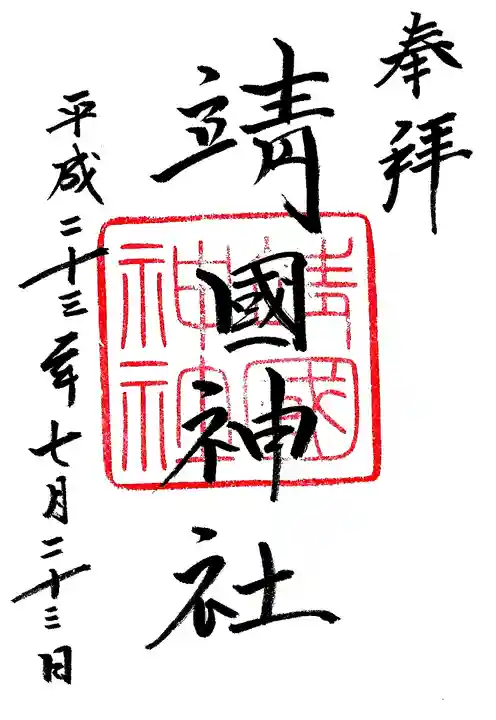 奉拝
靖國神社
靖國
神社
平成二十三年七月二十三日